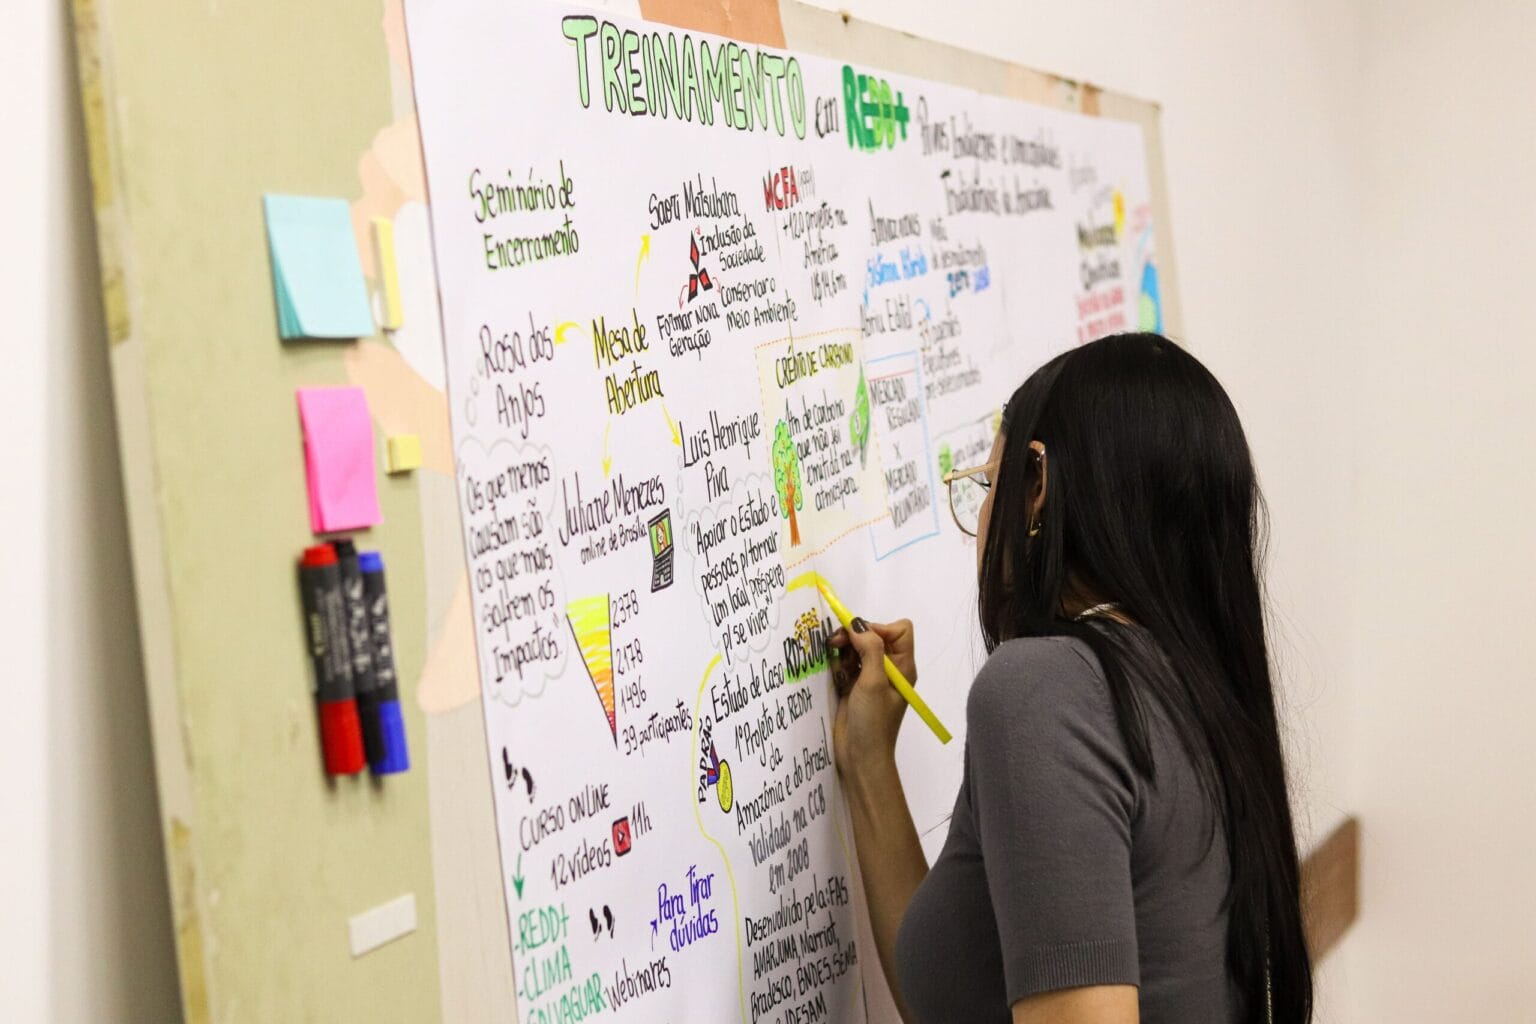 TREINAMENTO em REDD+
Povos Indígenas e Comunidades
Tradicionais da Amazônia
Seminário de
Encerramento
Saori Matsubara
Inclusão da
Sociedade
Conservar o
Meio Ambiente
Formar Nova
Geração
MCFA (1991)
+120 projetos na
América
U$14,6m
Amazonas
Sistema Híbrido
Abriu Edital
desmatamento
zero
Rosa dos
Anjos
Mesa de
Abertura
"Os que menos
causam são
os que mais
sofrem os
Impactos".
Juliane Menezes
online de Brasília
2378
2178
1496
39 participantes
Luis Henrique
Piva
"Apoiar o Estado e
pessoas p/ tornar
um local próspero
p/ se viver"
CRÉDITO DE CARBONO
1tn de carbono
que não foi
emitida na
atmosfera
MERCADO
REGULADO
X
MERCADO
VOLUNTÁRIO
Estudo de Caso RDS JUMA
PADRÃO
1º Projeto de REDD+
da
Amazônia e do Brasil
Validado na CCB
em 2008
Desenvolvido pela: FAS
AMARJUMA, Marriot,
Bradesco, BNDES, SEMA
e IDESAM
CURSO ONLINE
12 vídeos 11h
-REDD+
-CLIMA
-SALVAGUAR
Para Tirar
dúvidas
Webinares